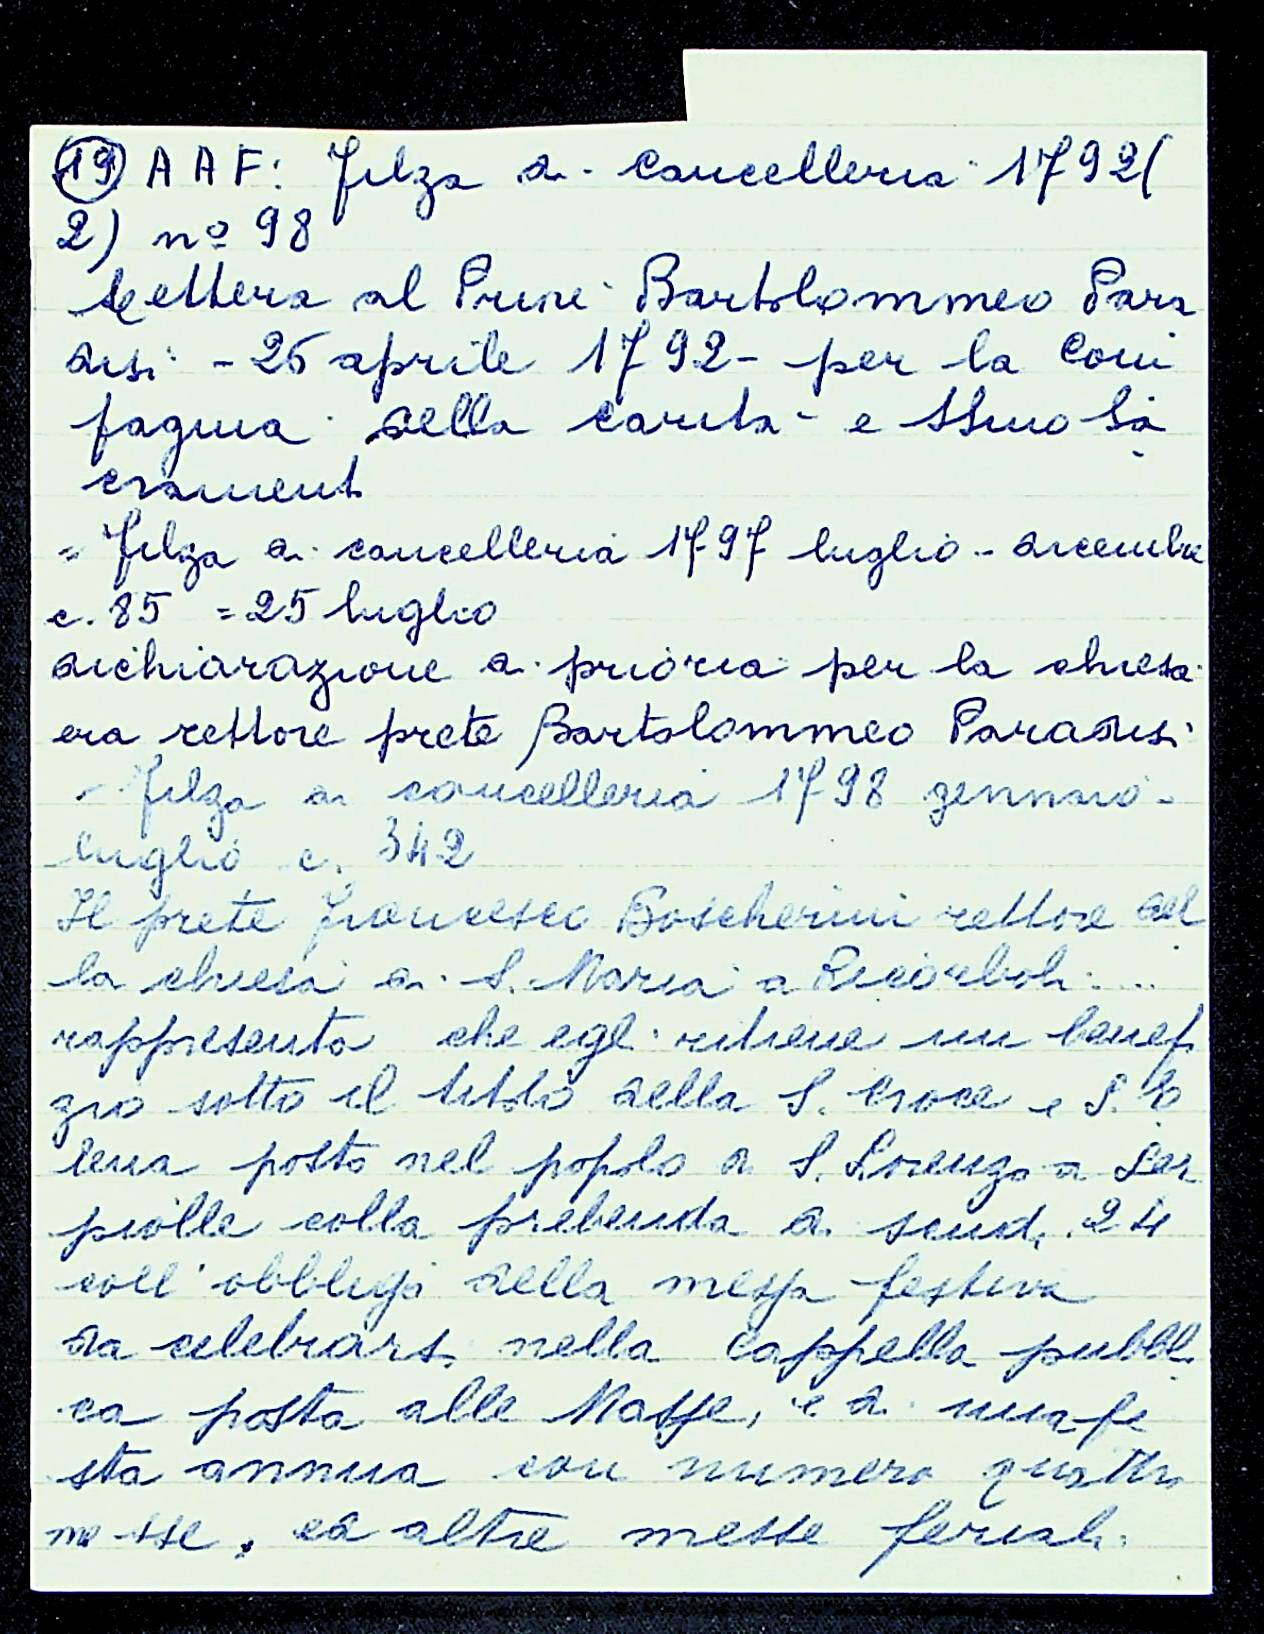 19 A A F: Filza di cancelleria 1792(
2) nº 98
Lettera al Priore Bartolommeo Para
disi - 26 aprile 1792 - per la Com
pagnia della carità - e SSmo Sa
crament
= Filza di cancelleria 1797 luglio - dicembre
c. 85 = 25 luglio
dichiarazione di prioria per la chiesa
era rettore prete Bartolommeo Paradisi
- Filza di cancelleria 1798 gennaio -
luglio c. 342
Il prete Francesco Boscherini rettore del
la chiesa di S. Maria a Ricorboli ....
rappresenta che egli ritiene un benefi
zio sotto il titolo della S. Croce e S. E
lena posto nel popolo di S. Lorenzo a Ser
piolle colla prebenda di scudi 24
coll'obbligo della messa festiva
da celebrarsi nella cappella pubbli
ca posta alle Masse, e di una fe
sta annua con numero quattro
messe, ed altre messe feriali.